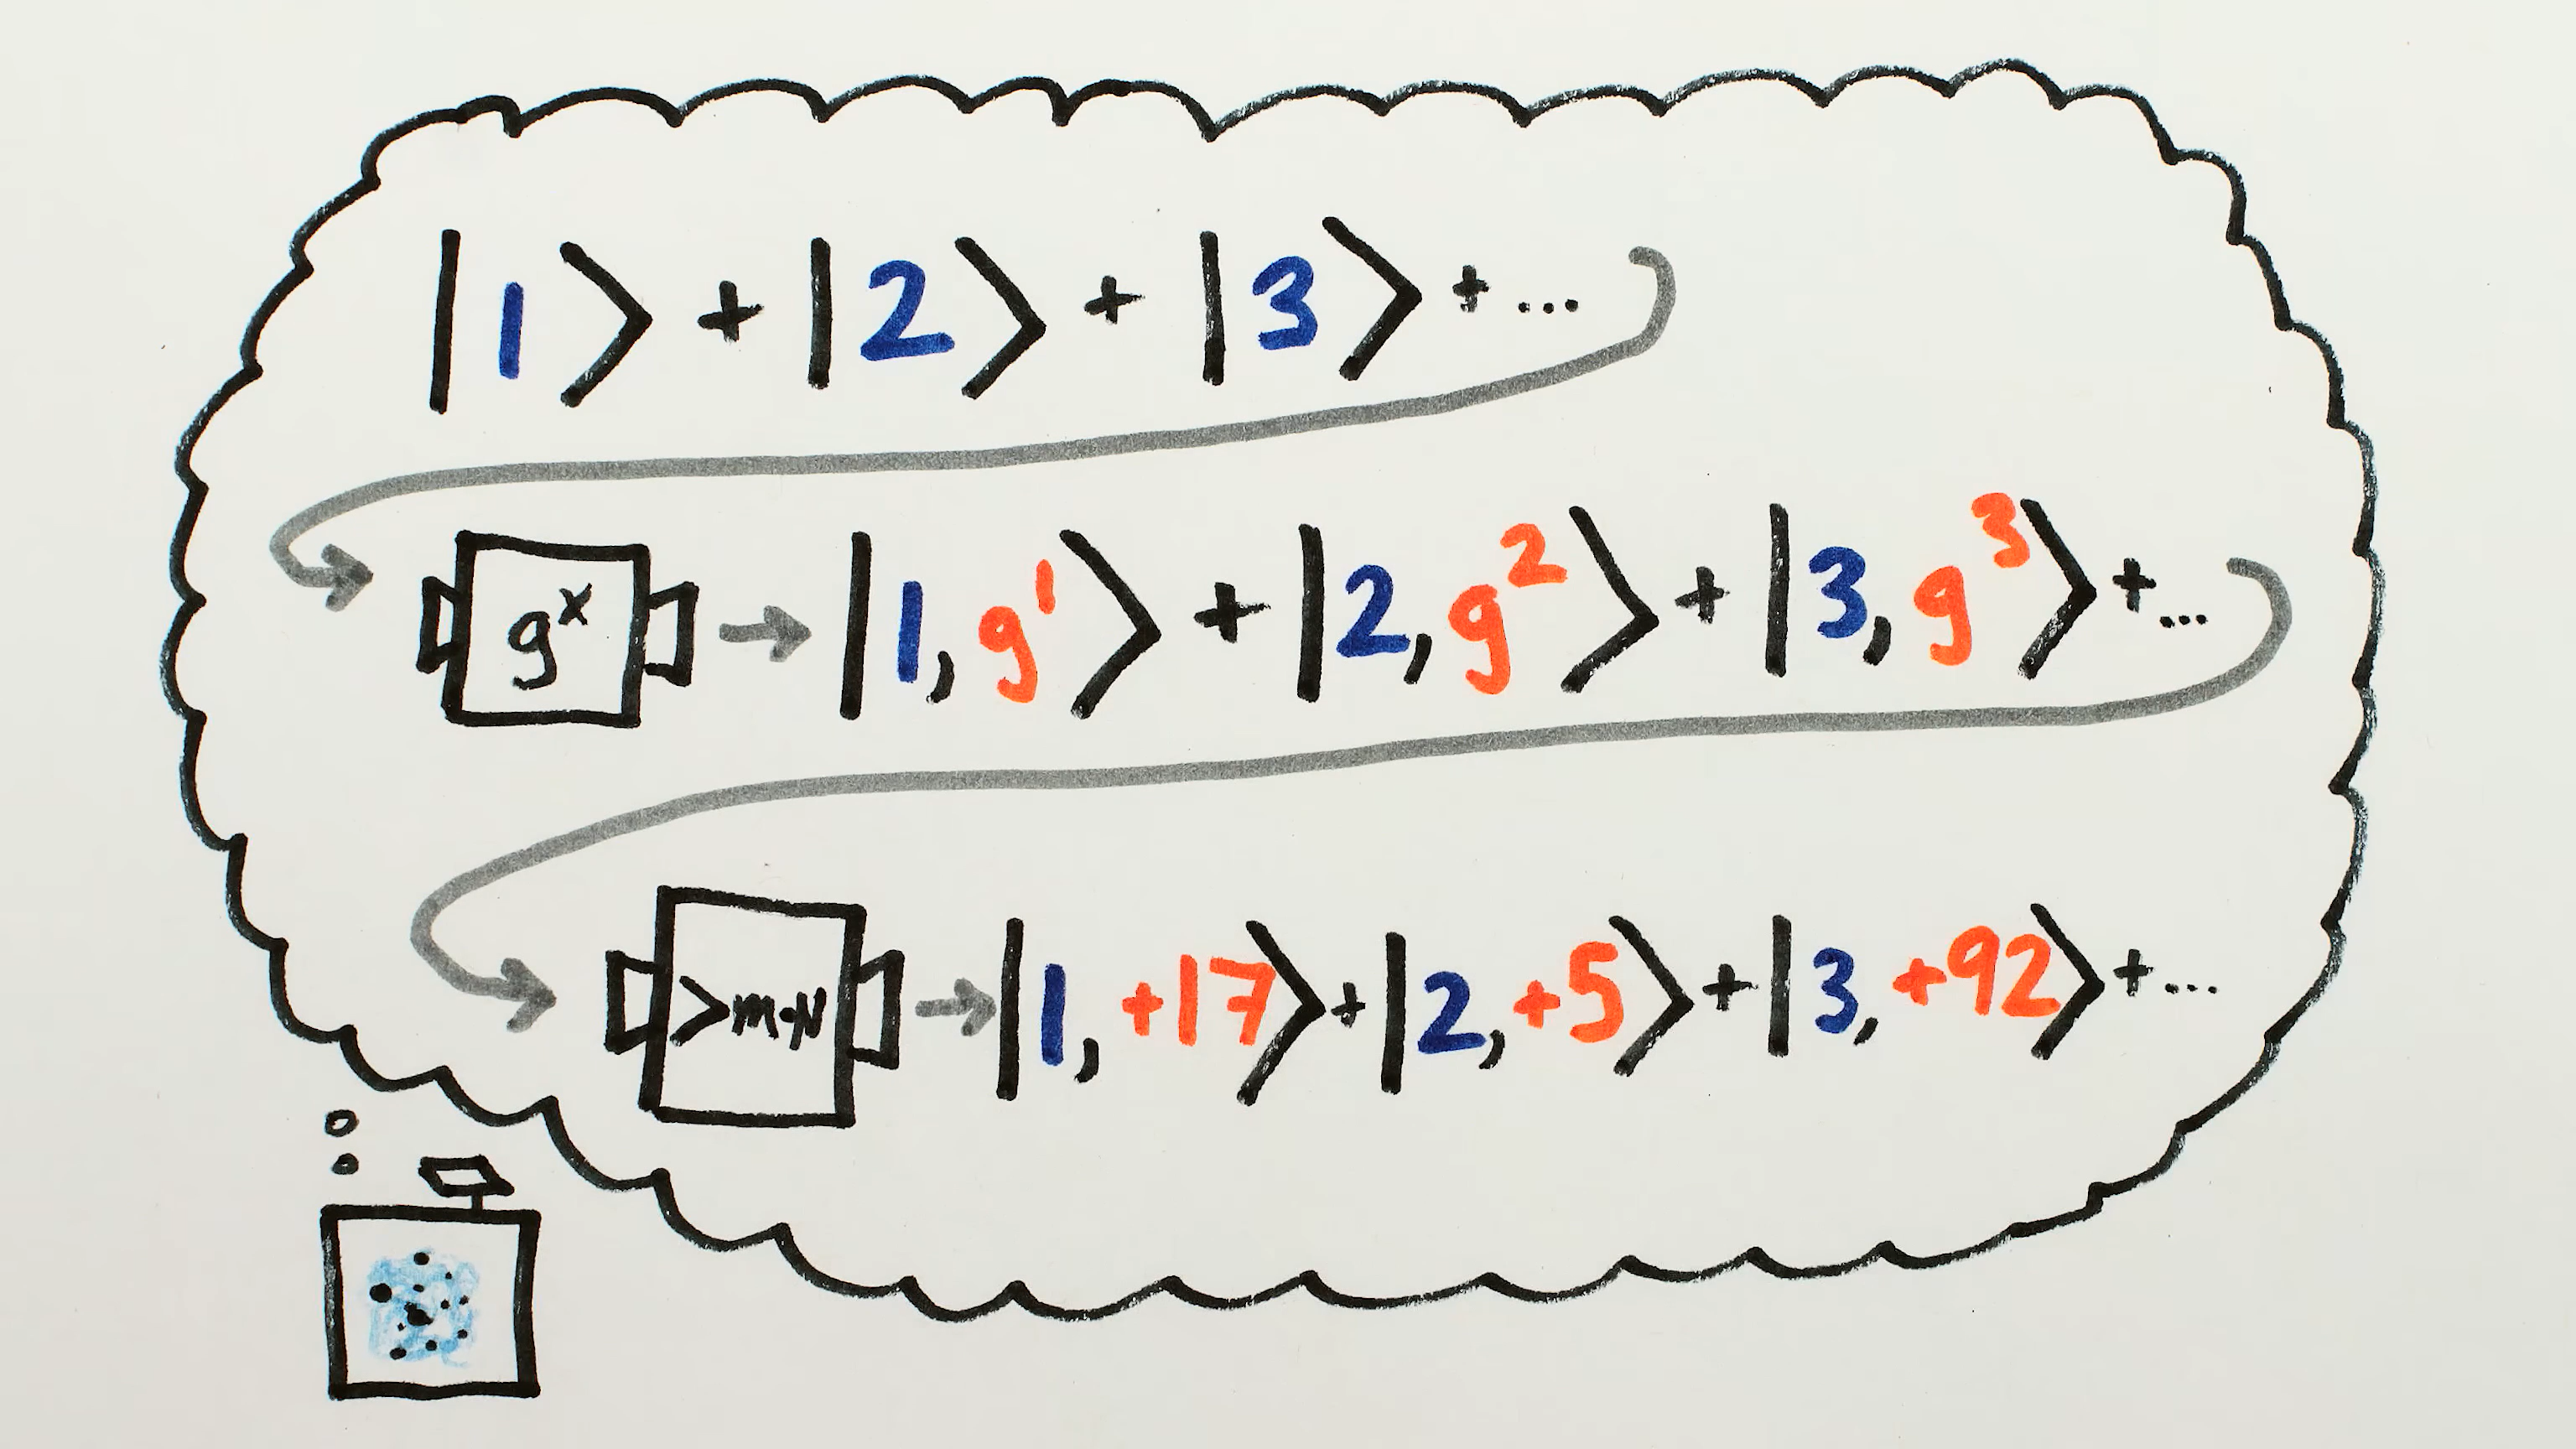 |1> + |2> + |3> + ...
g^x → |1, g^1> + |2, g^2> + |3, g^3> + ...
>m·N → |1, +17> + |2, +5> + |3, +92> + ...